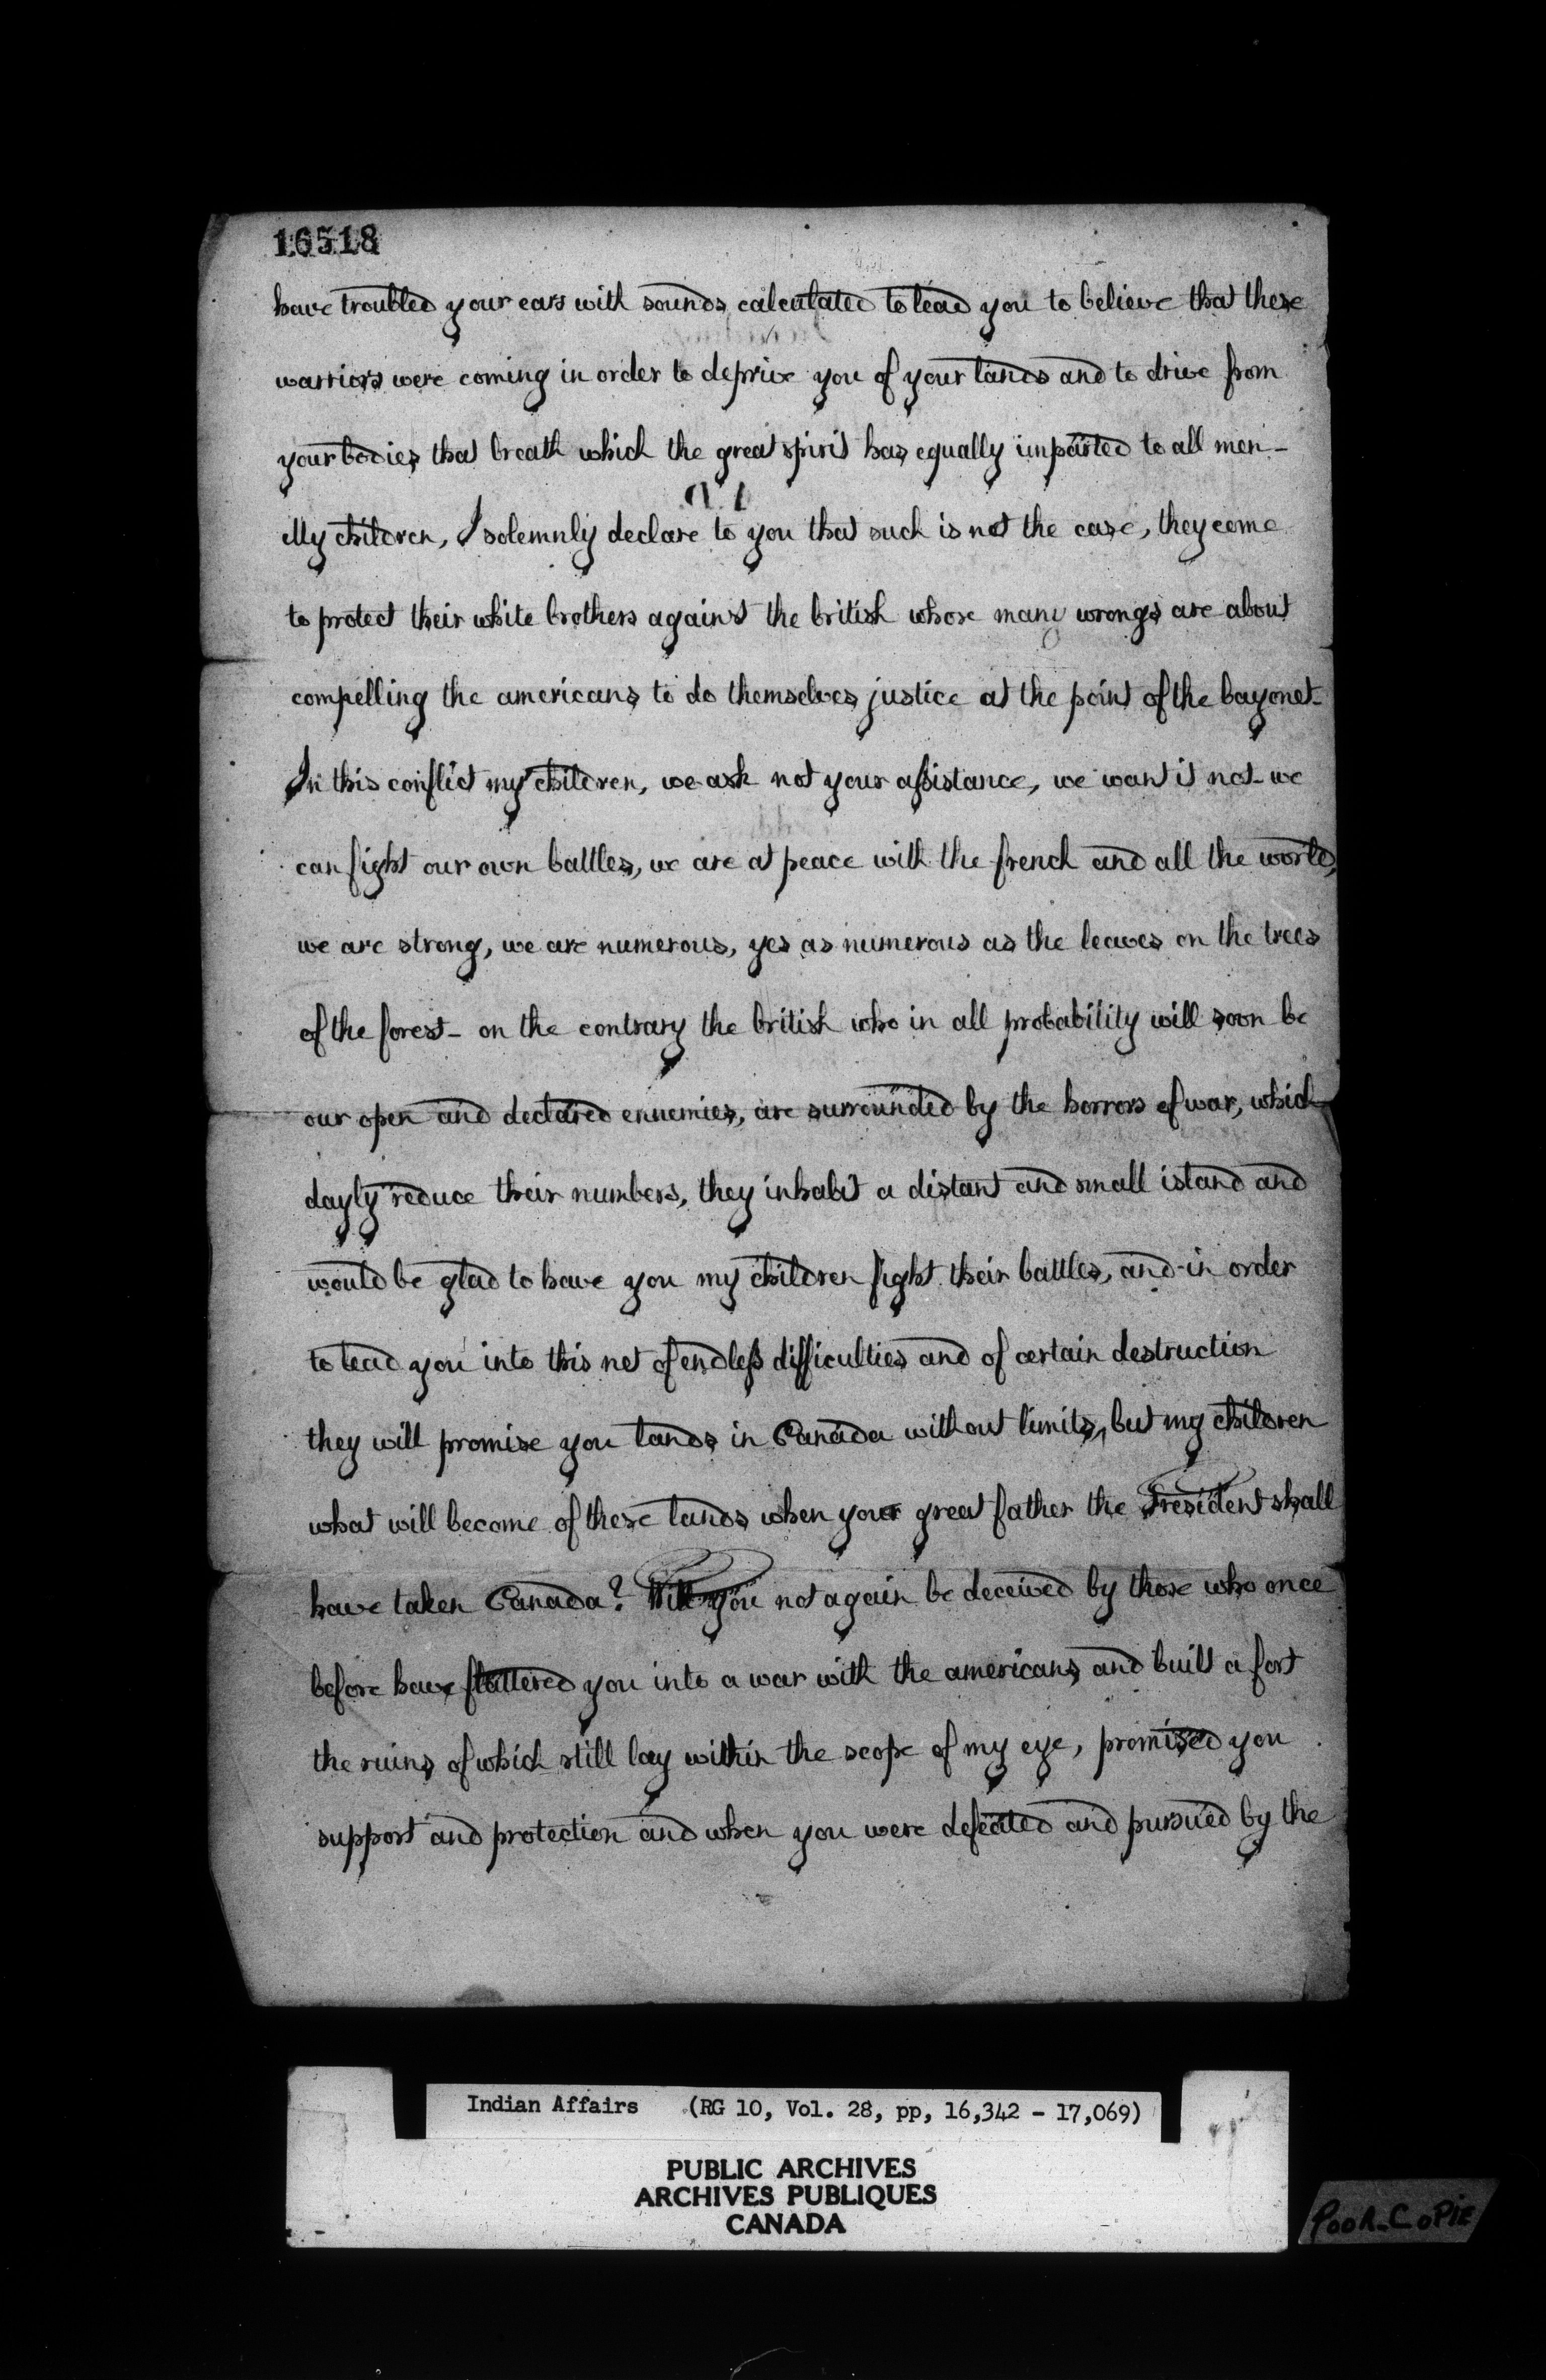 16518
have troubled your ears with sounds calculated to lead you to believe that these
warriors were coming in order to deprive you of your lands and to drive from
your bodies that breath which the great spirit has equally imparted to all men -
My children, I solemnly declare to you that such is not the case, they come
to protect their white brothers against the british whose many wrongs are about
compelling the americans to do themselves justice at the point of the bayonet -
In this conflict my children, we ask not your assistance, we want it not - we
can fight our own battles, we are at peace with the french and all the world,
we are strong, we are numerous, yes as numerous as the leaves on the trees
of the forest - on the contrary the british who in all probability will soon be
our open and declared ennemies, are surrounded by the horrors of war, which
dayly reduce their numbers, they inhabit a distant and small island and
would be glad to have you my children fight their battles, and in order
to lead you into this net of endless difficulties and of certain destruction
they will promise you lands in Canada without limits, but my children
what will become of these lands when your great father the President shall
have taken Canada? Will you not again be deceived by those who once
before have flattered you into a war with the americans and built a fort
the ruins of which still lay within the scope of my eye, promised you
support and protection and when you were defeated and pursued by the
Indian Affairs (RG 10, Vol. 28, pp, 16,342 - 17,069)
PUBLIC ARCHIVES
ARCHIVES PUBLIQUES
CANADA
POOR COPIE